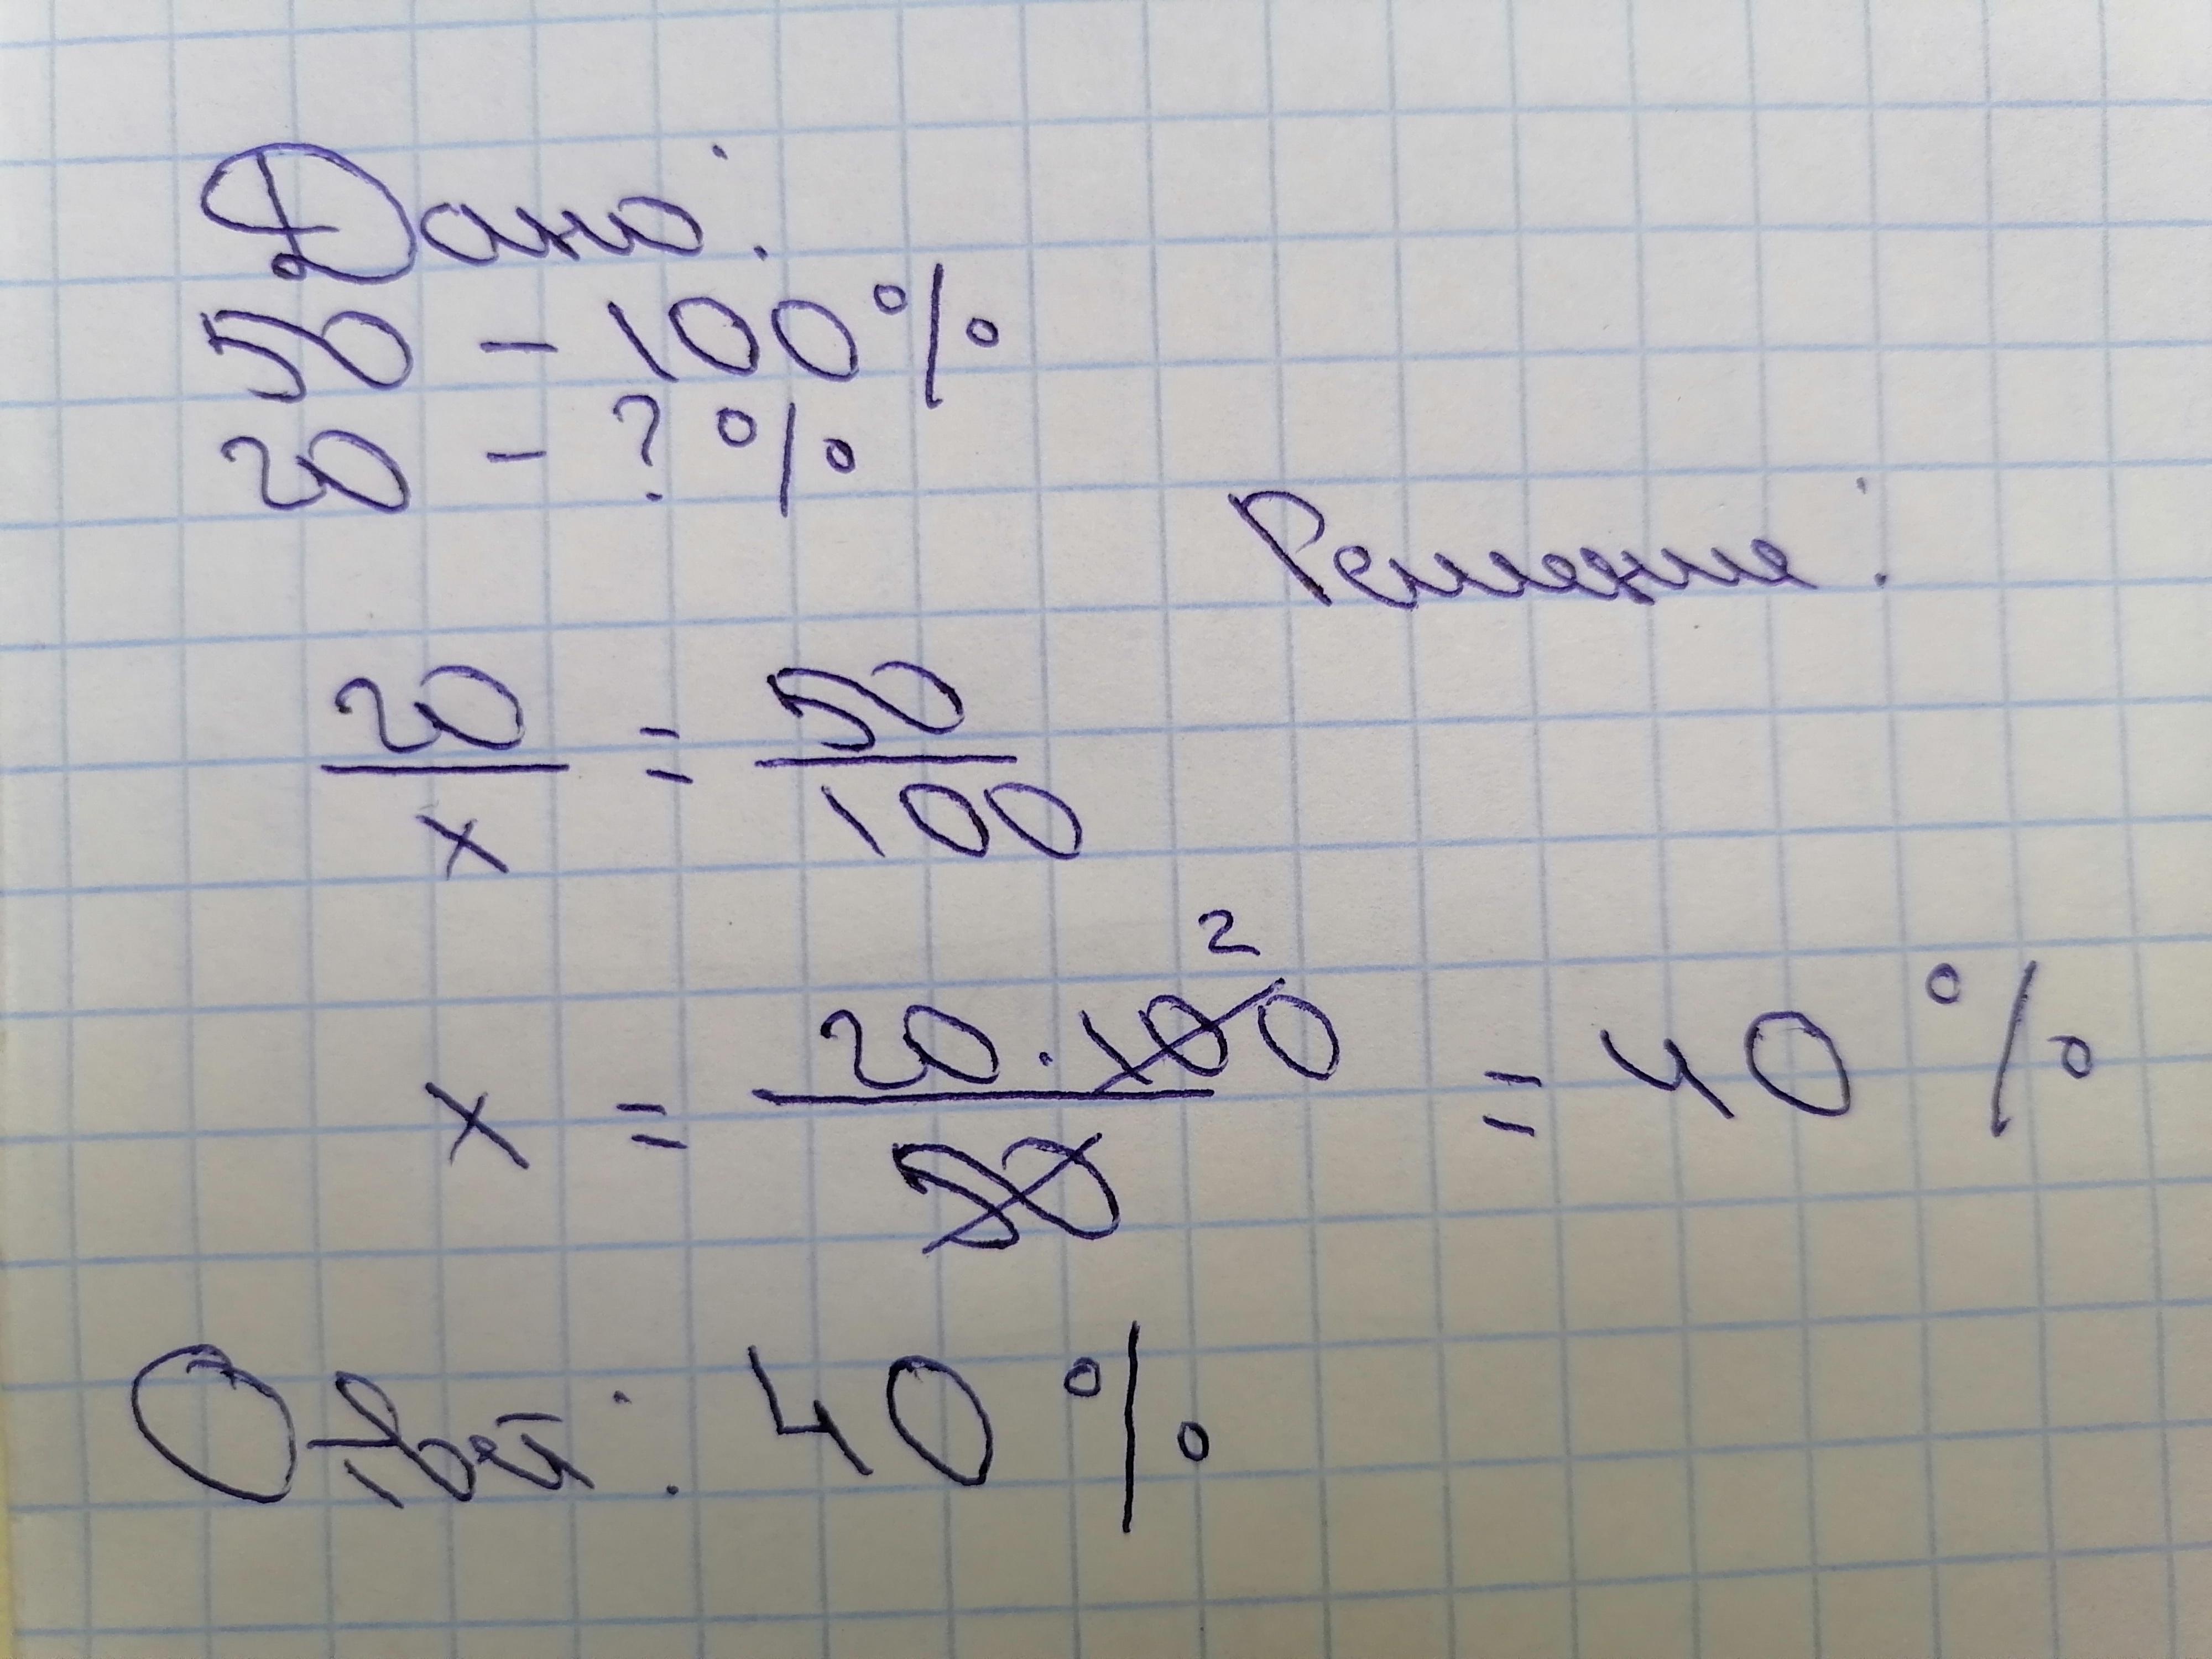 Дано:
50 - 100%
20 - ? %
Решение:
20/x = 50/100
x = 20·100/50 = 40 %
2
Ответ: 40 %